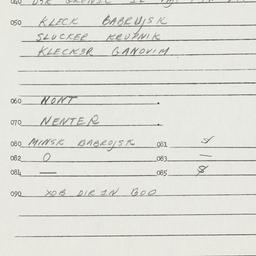 050 KLECK BABRUJSK
SLUCKER KRUZNIK
KLECKER GANOVIM
060 NONT
070 NENTER
080 MINSK BABROJSK 081
082 0 083 —
084 — 085 $
090 XOB DIR IN BOD